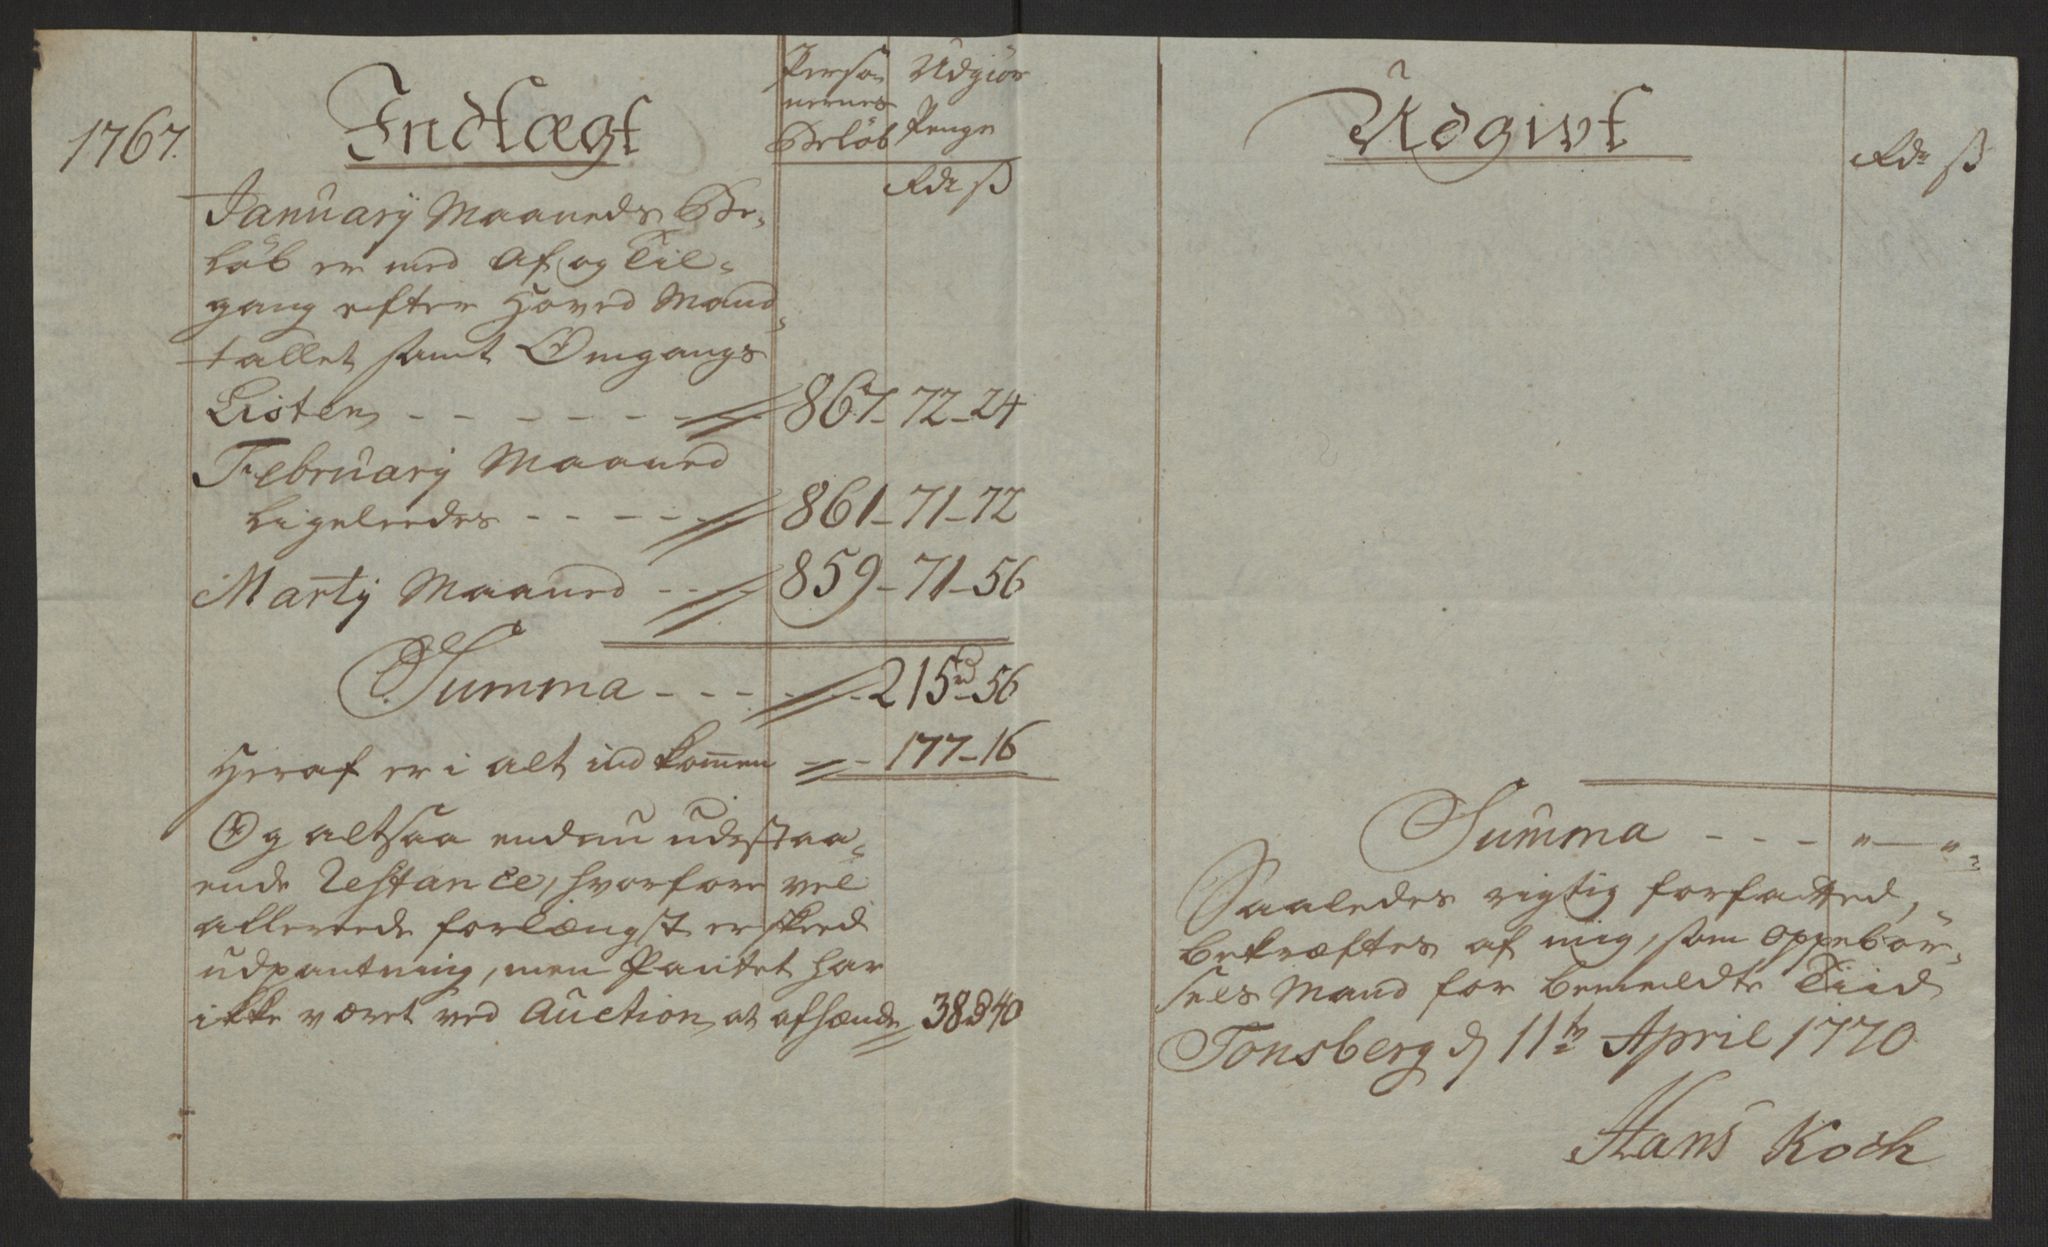 1767.
Indtægt
Perso-
nernes
Beløb
Udgiør
Penge
Rdr ß
Januarÿ Maaneds Be-
løb er med Af og Til-
gang efter Hoved Mand-
tallet samt Omgangs
Listen - - - - - - - 867 - 72 - 24
Februarÿ Maaned
ligeleedes - - - - - 861 - 71 - 72
Martÿ Maaned - - - 859 - 71 - 56
Summa - - - - - 215rd - 56
Heraf er i alt indkom̄en - - 177 - 16
Og altsaa endnu udestaa-
ende Restance, hvorfore vel
allereede forlængst er skeed
udpantning, men Pantet har
ikke været ved Auction at afhænde 38rd 40
Udgivt
Rdr ß
Summa - - - " — "
Saaledes rigtig forfatted,
bekræftes af mig, som Oppebør-
sels Mand for bemeldte Tiid
Tonsberg d 11te April 1770
Hans Koch